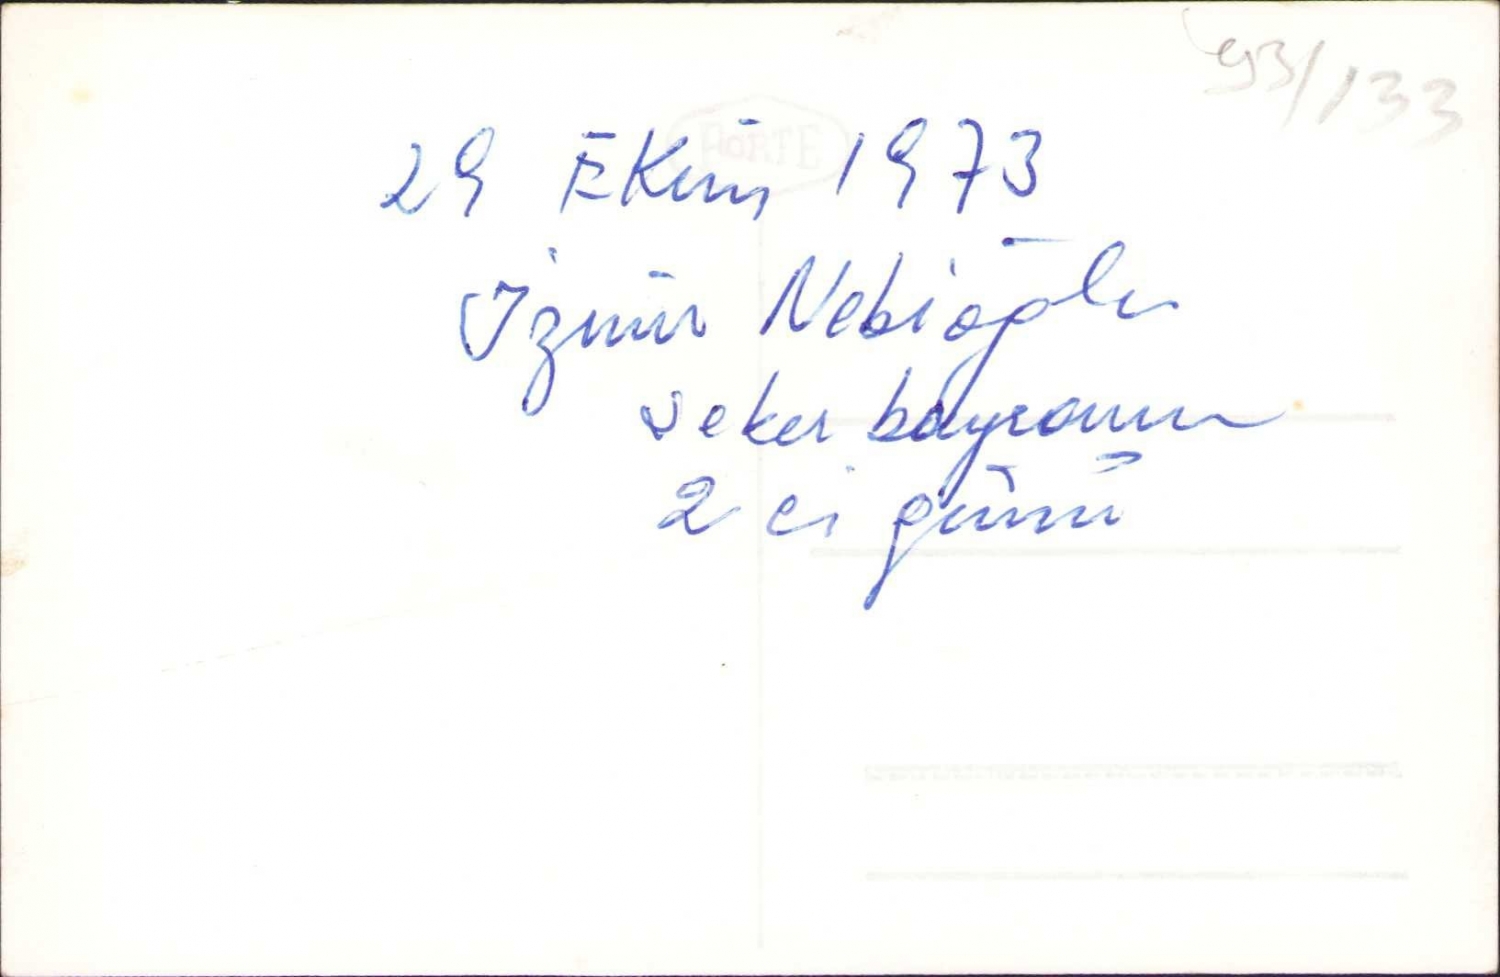 93/133
PORTE
29 Ekim, 1973
İzmir Nebioğlu
şeker bayramın
2 ci günü